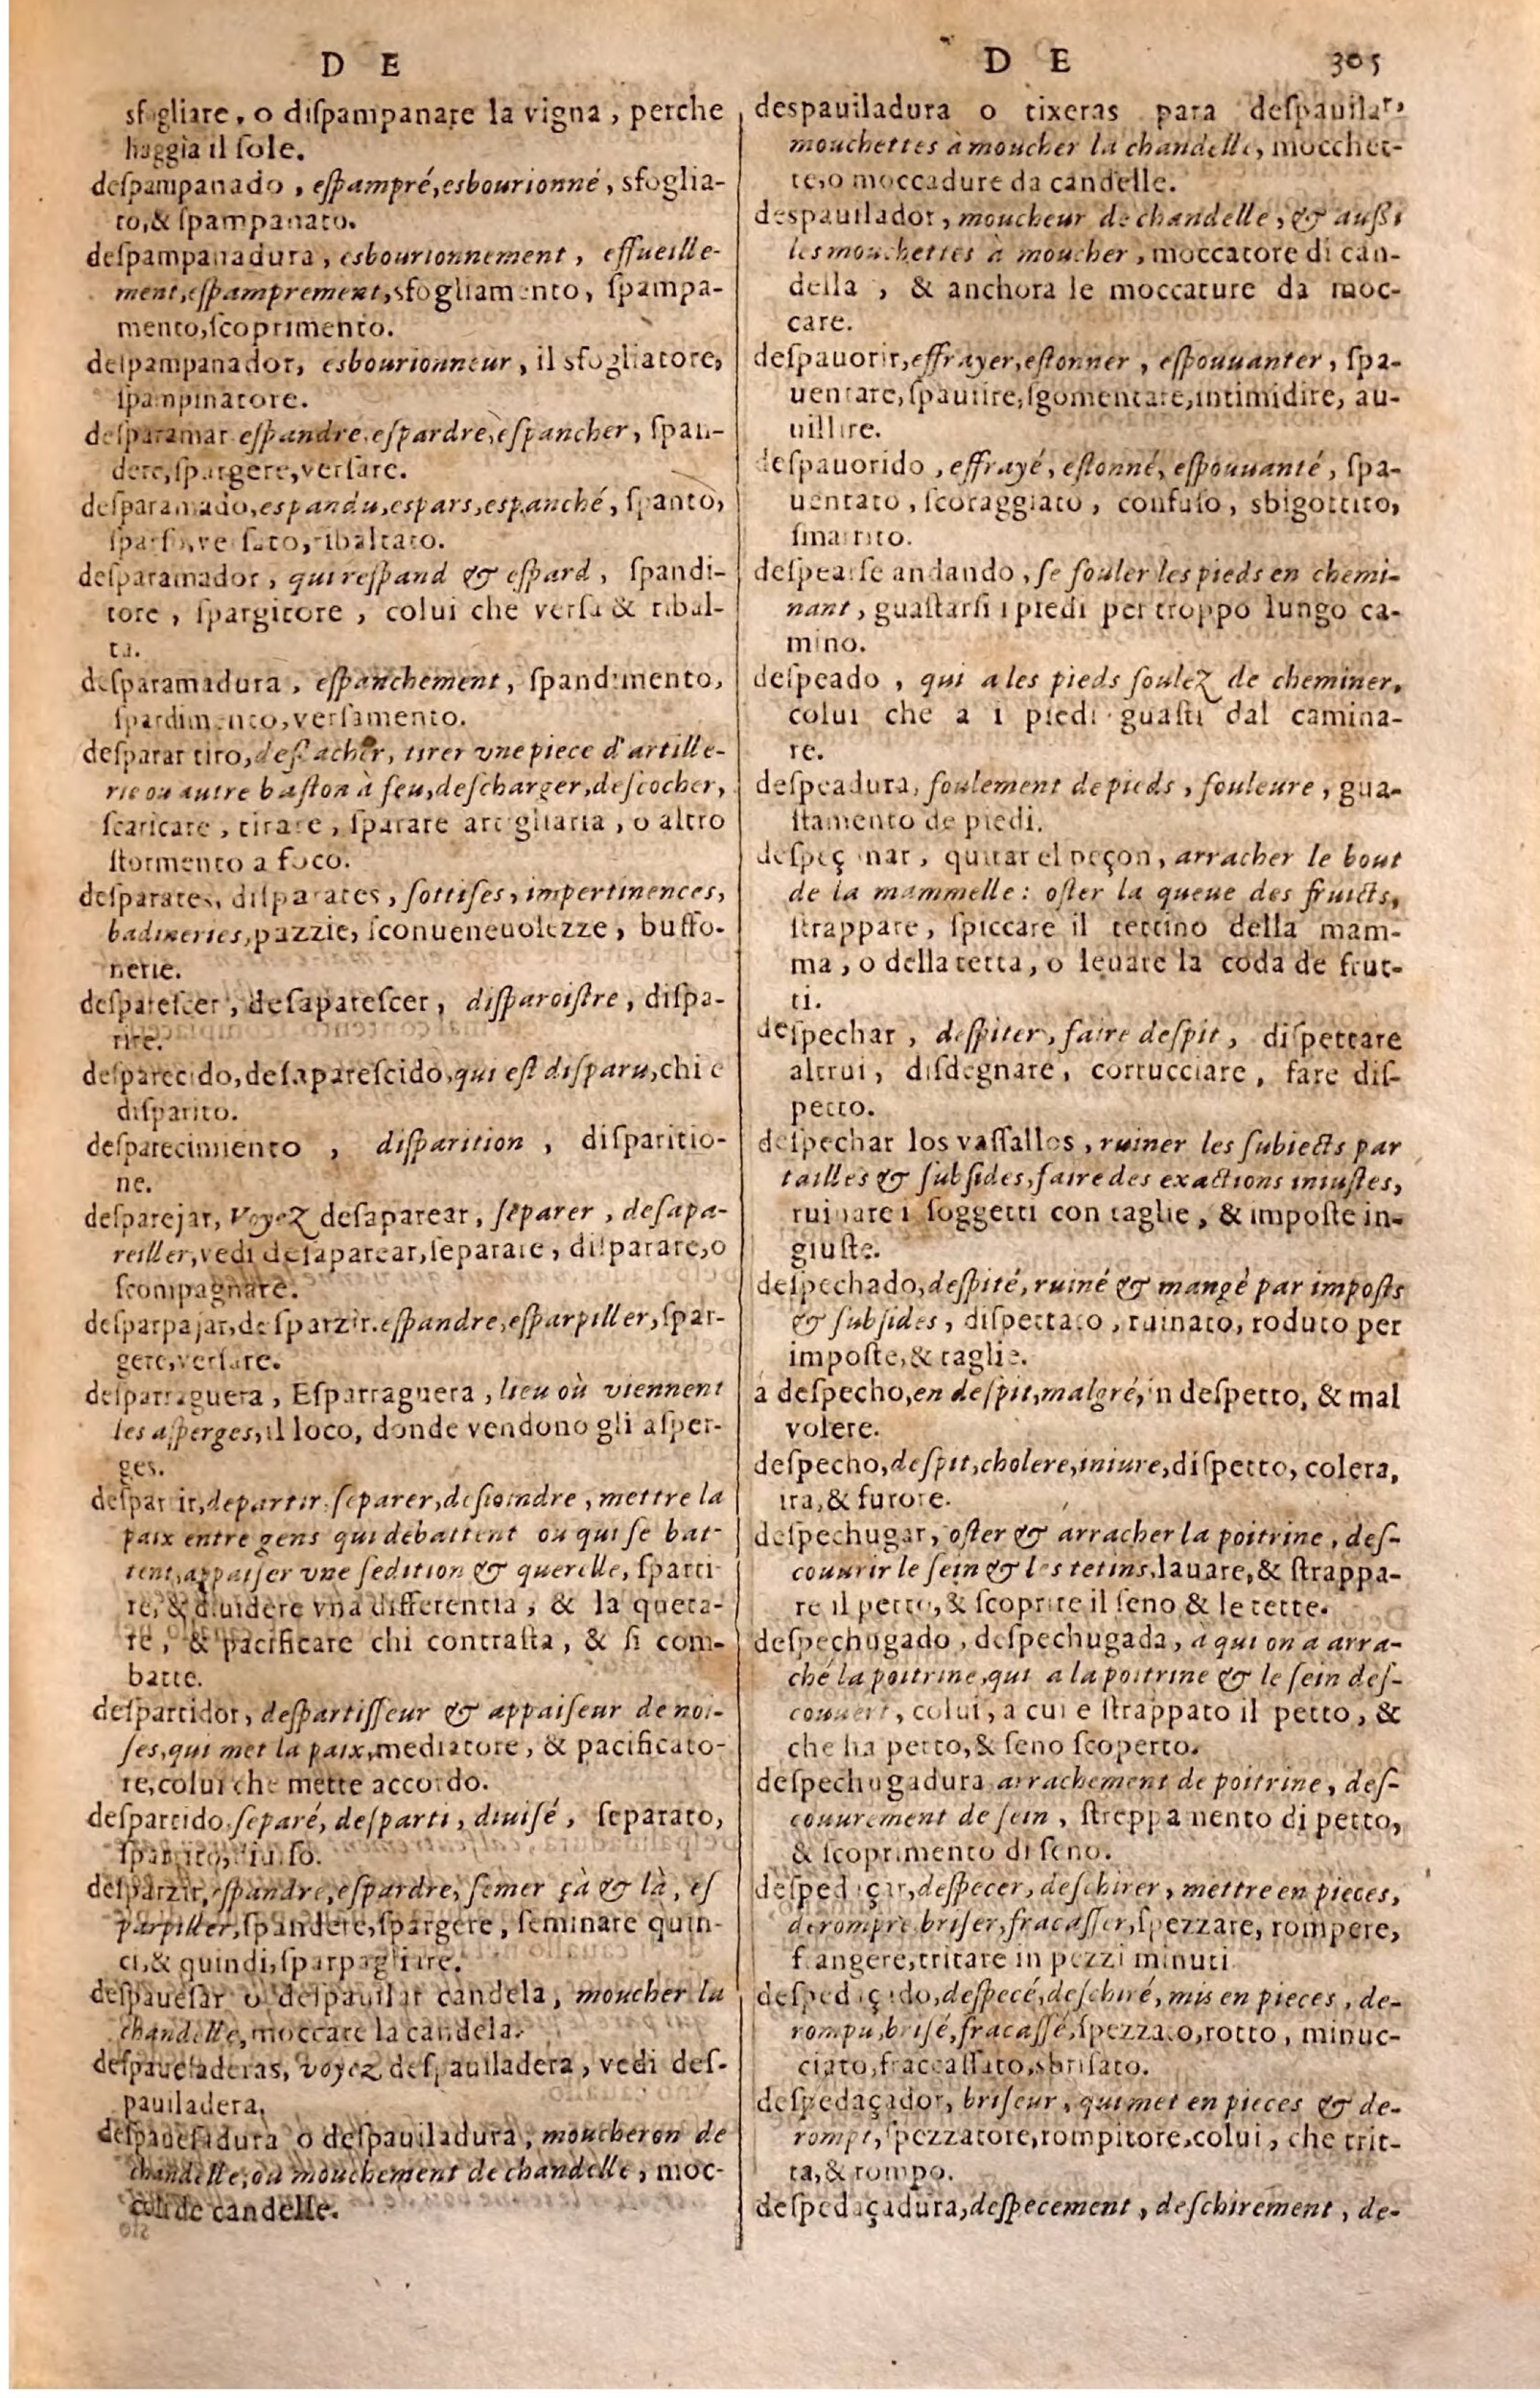 D E
sfogliare, o diſpampanare la vigna, perche
haggia il ſole.
deſpampanado, eſpampré, esbourionné, sfoglia-
to, & ſpampanato.
deſpampanadura, esbourionnement, effueille-
ment, eſpamprement, sfogliamento, ſpampa-
mento, ſcoprimento.
deſpampanador, esbourionneur, il sfogliatore,
ſpampinatore.
deſparamar eſpandre, eſpardre, eſpancher, ſpan-
dere, ſpargere, verſare.
deſparamado, espandu, espars, espanché, ſpanto,
ſparſo, verſato, ribaltato.
deſparamador, qui reſpand & eſpard, ſpandi-
tore, ſpargitore, colui che verſa & ribal-
ta.
deſparamadura, eſpanchement, ſpandimento,
ſpardimento, verſamento.
deſparar tiro, deſlacher, tirer vne piece d'artille-
rie ou autre baſton à feu, deſcharger, deſcocher,
ſcaricare, tirare, ſparare artegliaria, o altro
ſtormento a foco.
deſparates, diſparates, ſottiſes, impertinences,
badineries, pazzie, ſconueneuolezze, buffo-
nerie.
deſpareſcer, deſapareſcer, diſparoiſtre, diſpa-
rire.
deſparecido, deſapareſcido, qui eſt diſparu, chi e
diſparito.
deſparecimiento, diſparition, diſparitio-
ne.
deſparejar, voyez deſaparear, ſeparer, deſapa-
reiller, vedi deſaparear, ſeparare, diſparare, o
ſcompagnare.
deſparpajar, deſparzir. eſpandre, eſparpiller, ſpar-
gere, verſare.
deſparraguera, Eſparraguera, lieu où viennent
les aſperges, il loco, donde vendono gli aſper-
ges.
deſpartir, departir, ſeparer, deſioindre, mettre la
paix entre gens qui debattent ou qui ſe bat-
tent, appaiſer vne ſedition & querelle, ſparti
re, & diuidere vna differentia, & la queta-
re, & pacificare chi contraſta, & ſi com-
batte.
deſpartidor, deſpartiſſeur & appaiſeur de noi-
ſes, qui met la paix, mediatore, & pacificato-
re, colui che mette accordo.
deſpartido, ſeparé, deſparti, diuiſé, ſeparato,
ſpartito, diuiſo.
deſparzir, eſpandre, eſpardre, ſemer çà & là, eſ
parpiller, ſpandere, ſpargere, ſeminare quin-
ci, & quindi, ſparpagliare.
deſpaveſar o deſpauilar candela, moucher la
chandelle, moccare la candela.
deſpaueſaderas, voyez deſpauiladera, vedi deſ-
pauiladera.
deſpaueſadura o deſpauiladura, moucheron de
chandelle, ou mouchement de chandelle, moc-
coli de candelle.
D E 305
despauiladura o tixeras para deſpauilar,
mouchettes à moucher la chandelle, mocchet-
te, o moccadure da candelle.
despauilador, moucheur de chandelle, & auſſi
les mouchettes à moucher, moccatore di can-
della, & anchora le moccature da moc-
care.
deſpauorir, effrayer, eſtonner, eſpouuanter, ſpa-
uentare, ſpaurire, ſgomentare, intimidire, au-
uillire.
deſpauorido, effrayé, eſtonné, eſpouuanté, ſpa-
uentato, ſcoraggiato, confuſo, sbigottito,
ſmarrito.
deſpearſe andando, ſe fouler les pieds en chemi-
nant, guaſtarſi i piedi per troppo lungo ca-
mino.
deſpeado, qui a les pieds foulez de cheminer,
colui che a i piedi guaſti dal camina-
re.
deſpeadura, foulement de pieds, fouleure, gua-
ſtamento de piedi.
deſpeçonar, quitar el peçon, arracher le bout
de la mammelle: oſter la queue des fruicts,
ſtrappare, ſpiccare il tettino della mam-
ma, o della tetta, o leuare la coda de frut-
ti.
deſpechar, deſpiter, faire deſpit, diſpettare
altrui, diſdegnare, corrucciare, fare diſ-
petto.
deſpechar los vaſſallos, ruiner les ſubiects par
tailles & ſubſides, faire des exactions iniuſtes,
ruinare i ſoggetti con taglie, & impoſte in-
giuſte.
deſpechado, deſpité, ruiné & mangé par impoſts
& ſubſides, diſpettato, ruinato, roduto per
impoſte, & taglie.
a deſpecho, en deſpit, malgré, in deſpetto, & mal
volere.
deſpecho, deſpit, cholere, iniure, diſpetto, colera,
ira, & furore.
deſpechugar, oſter & arracher la poitrine, deſ-
couurir le ſein & les tetins, lauare, & ſtrappa-
re il petto, & ſcoprire il ſeno & le tette.
deſpechugado, deſpechugada, a qui on a arra-
ché la poitrine, qui a la poitrine & le ſein deſ-
couuert, colui, a cui e ſtrappato il petto, &
che ha petto, & ſeno ſcoperto.
deſpechugadura arrachement de poitrine, deſ-
couurement de ſein, ſtreppamento di petto,
& ſcoprimento di ſeno.
deſpedaçar, deſpecer, deſchirer, mettre en pieces,
derompre briſer, fracaſſer, ſpezzare, rompere,
frangere, tritare in pezzi minuti.
deſpedaçado, deſpecé, deſchiré, mis en pieces, de-
rompu, briſé, fracaſſé, ſpezzato, rotto, minuc-
ciato, fraccaſſato, sbriſato.
deſpedaçador, briſeur, qui met en pieces & de-
rompt, ſpezzatore, rompitore, colui, che trit-
ta, & rompo.
deſpedaçadura, deſpecement, deſchirement, de-